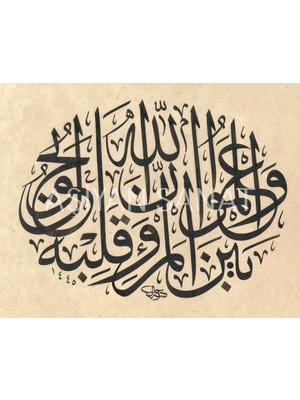 واعلموا أن الله يحول
بين المرء وقلبه
١٤٤٥
ASMAN SANAT